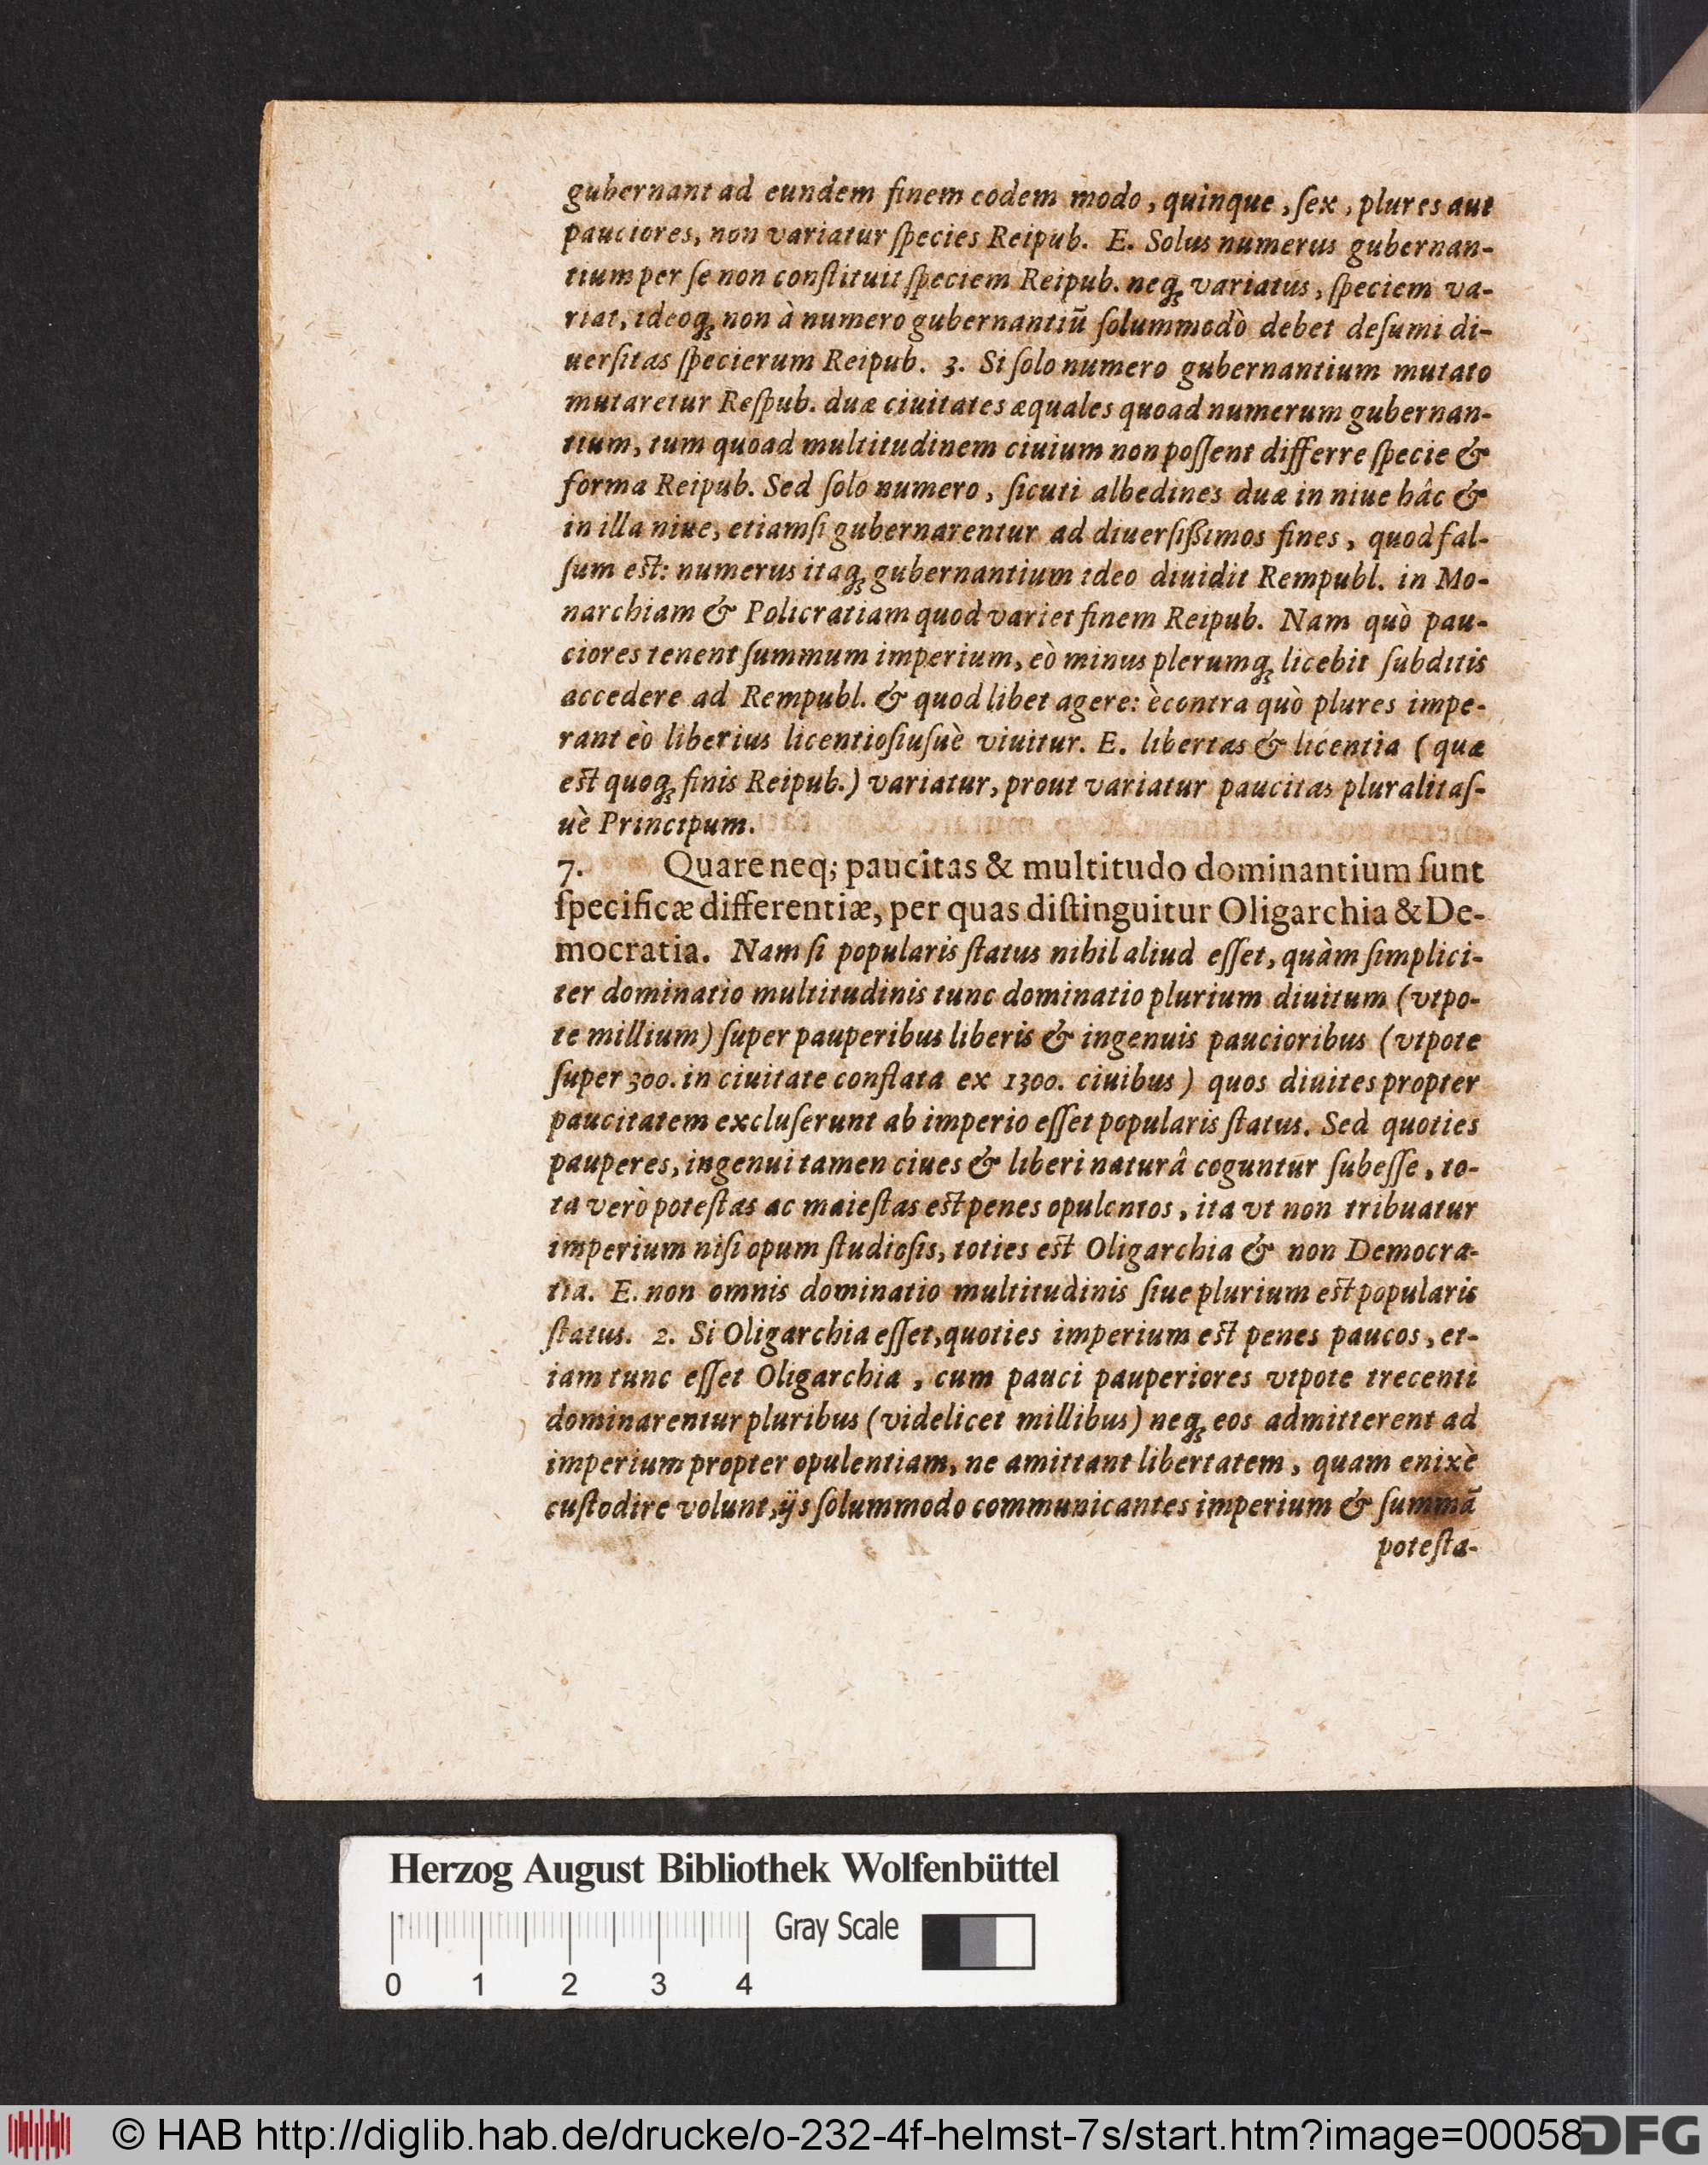 gubernant ad eundem finem eodem modo, quinque, ſex, plures aut
pauciores, non variatur ſpecies Reipub. E. Solus numerus gubernan-
tium per ſe non conſtituit ſpeciem Reipub. neq́; variatus, ſpeciem va-
riat, ideoq́; non à numero gubernantiũ ſolummodò debet deſumi di-
uerſitas ſpecierum Reipub. 3. Si ſolo numero gubernantium mutato
mutaretur Reſpub. duæ ciuitates æquales quoad numerum gubernan-
tium, tum quoad multitudinem ciuium non poſſent differre ſpecie &
forma Reipub. Sed ſolo numero, ſicuti albedines duæ in niue hâc &
in illa niue, etiamſi gubernarentur ad diuerſißimos fines, quod fal-
ſum eſt: numerus itaq́; gubernantium ideo diuidit Rempubl. in Mo-
narchiam & Policratiam quod variet finem Reipub. Nam quò pau-
ciores tenent ſummum imperium, eò minus plerumq́; licebit ſubditis
accedere ad Rempubl. & quod libet agere: è contra quò plures impe-
rant eò liberius licentioſiuſuè viuitur. E. libertas & licentia (quæ
eſt quoq́; finis Reipub.) variatur, prout variatur paucitas pluralitaſ-
uè Principum.
7. Quare neq; paucitas & multitudo dominantium ſunt
ſpecificæ differentiæ, per quas diſtinguitur Oligarchia & De-
mocratia. Nam ſi popularis ſtatus nihil aliud eſſet, quàm ſimplici-
ter dominatio multitudinis tunc dominatio plurium diuitum (vtpo-
te millium) ſuper pauperibus liberis & ingenuis paucioribus (vtpote
ſuper 300. in ciuitate conflata ex 1300. ciuibus) quos diuites propter
paucitatem excluſerunt ab imperio eſſet popularis ſtatus. Sed quoties
pauperes, ingenui tamen ciues & liberi naturâ coguntur ſubeſſe, to-
ta verò poteſtas ac maieſtas eſt penes opulentos, ita vt non tribuatur
imperium niſi opum ſtudioſis, toties eſt Oligarchia & non Democra-
tia. E. non omnis dominatio multitudinis ſiue plurium eſt popularis
ſtatus. 2. Si Oligarchia eſſet, quoties imperium eſt penes paucos, et-
iam tunc eſſet Oligarchia, cum pauci pauperiores vtpote trecenti
dominarentur pluribus (videlicet millibus) neq́; eos admitterent ad
imperium propter opulentiam, ne amittant libertatem, quam enixè
cuſtodire volunt, ijs ſolummodo communicantes imperium & ſummã
poteſta-
Herzog August Bibliothek Wolfenbüttel
Gray Scale
0 1 2 3 4
© HAB http://diglib.hab.de/drucke/o-232-4f-helmst-7s/start.htm?image=00058
DFG